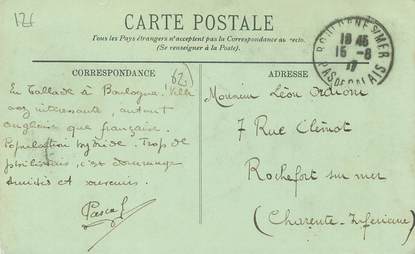 12f
CARTE POSTALE
Tous les Pays étrangers n'acceptent pas la Correspondance au recto.
(Se renseigner à la Poste).
BOULOGNE S/MER
18 45
15 - 8
17
PAS DE CALAIS
CORRESPONDANCE
62
ADRESSE
En ballade à Boulogne. Ville
assez intéressante, autant
anglaise que française.
Population hybride. Trop de
c'est dommage
Amitiés et souvenirs.
Pascal
Monsieur Léon
7 Rue Clémot
Rochefort sur mer
(Charente-Inférieure)